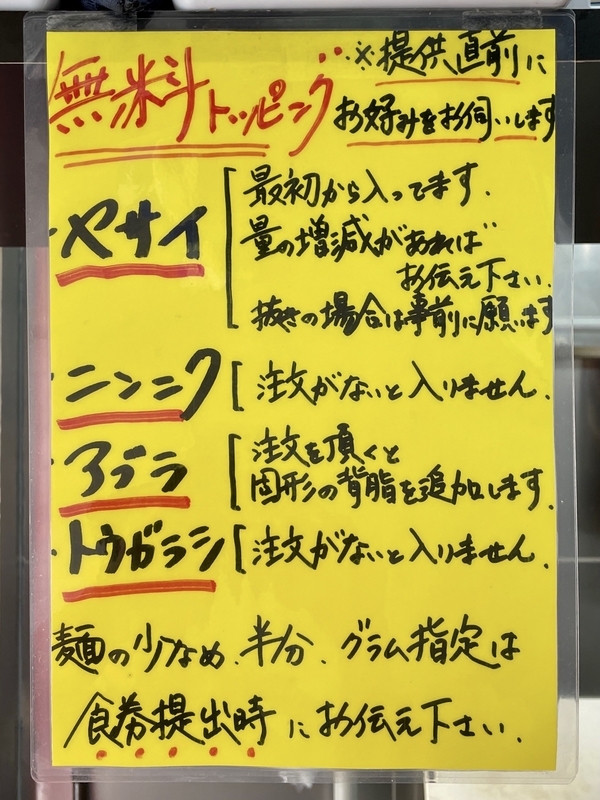 無料トッピング
※提供直前に
お好みをお伺いします
・ヤサイ
最初から入ってます.
量の増減があれば
お伝え下さい.
抜きの場合は事前に願います
・ニンニク
注文がないと入りません.
・アブラ
注文を頂くと
固形の背脂を追加します.
・トウガラシ
注文がないと入りません.
麺の少なめ.半分.グラム指定は
食券提出時にお伝え下さい.